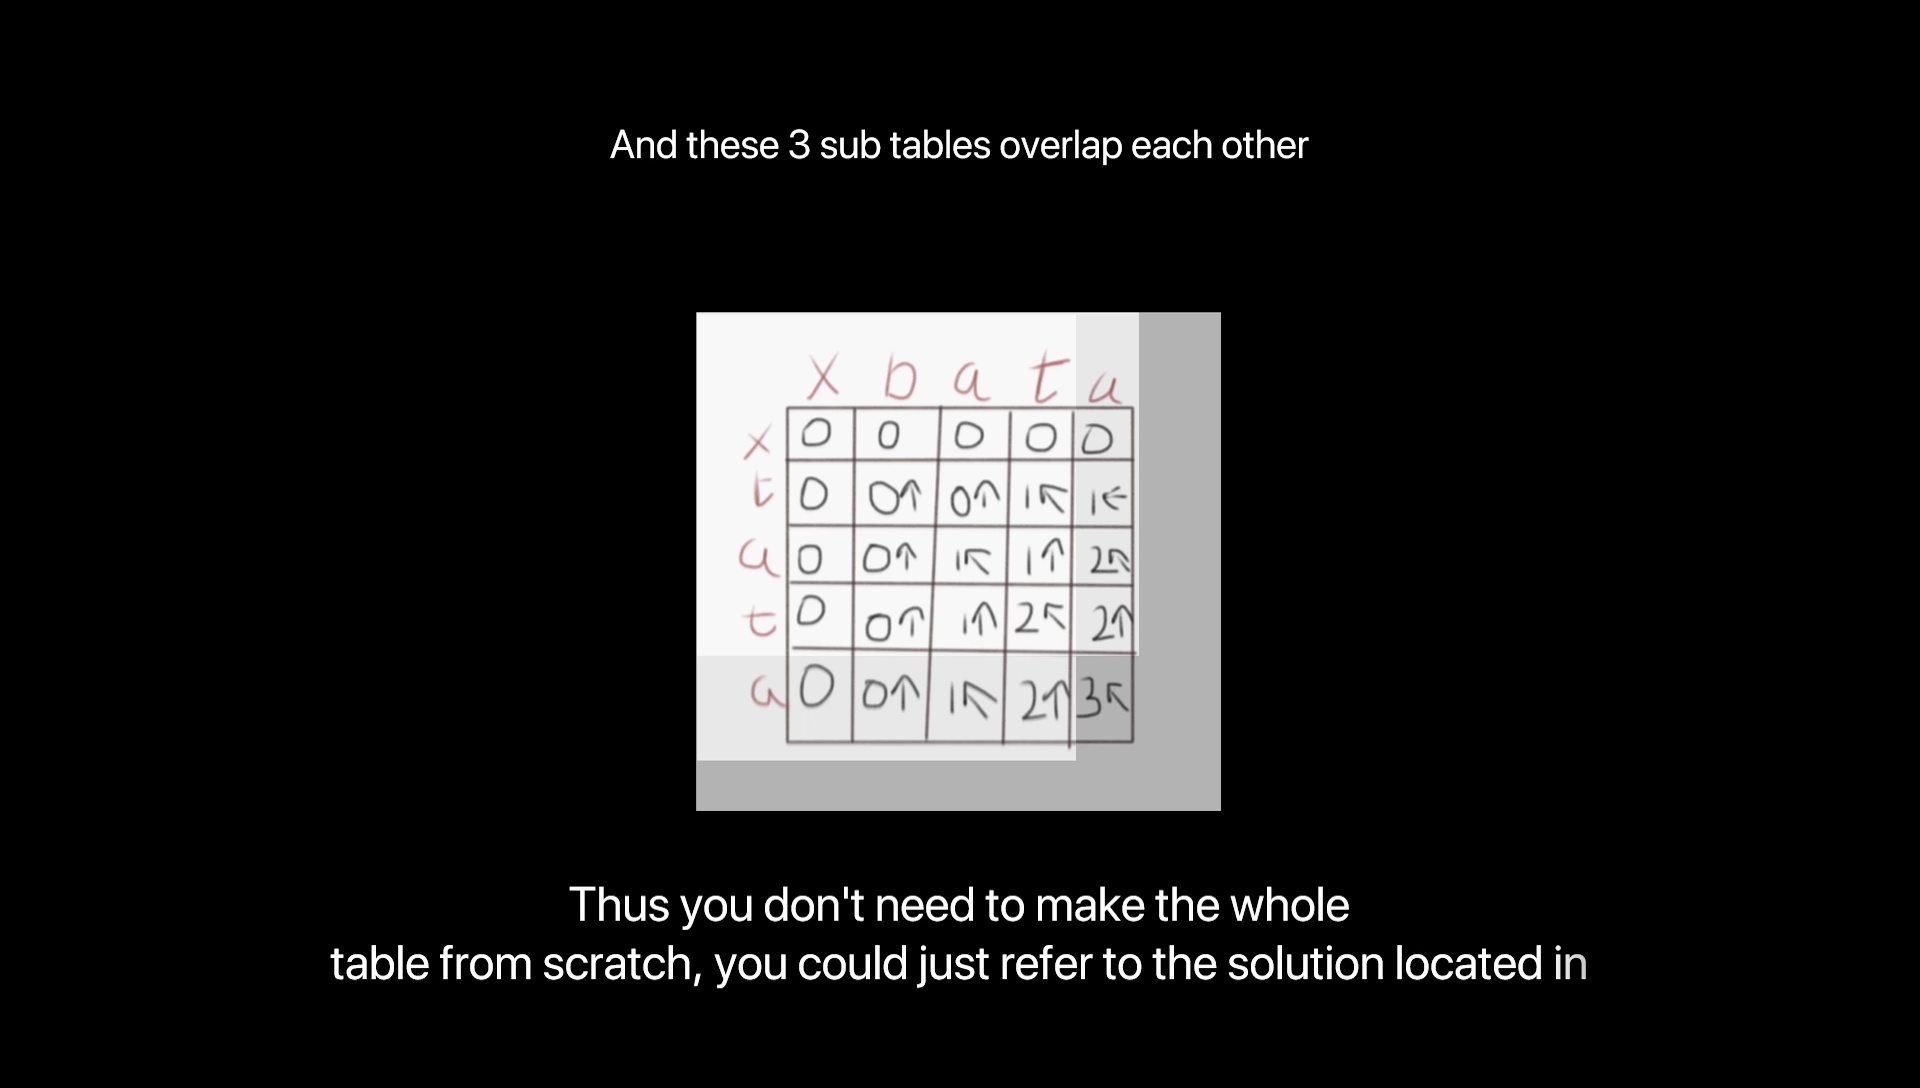 And these 3 sub tables overlap each other
X b a t a
x 0 0 0 0 0
t 0 0↑ 0↑ 1↖ 1←
a 0 0↑ 1↖ 1↑ 2↖
t 0 0↑ 1↑ 2↖ 2↑
a 0 0↑ 1↖ 2↑ 3↖
Thus you don't need to make the whole
table from scratch, you could just refer to the solution located in